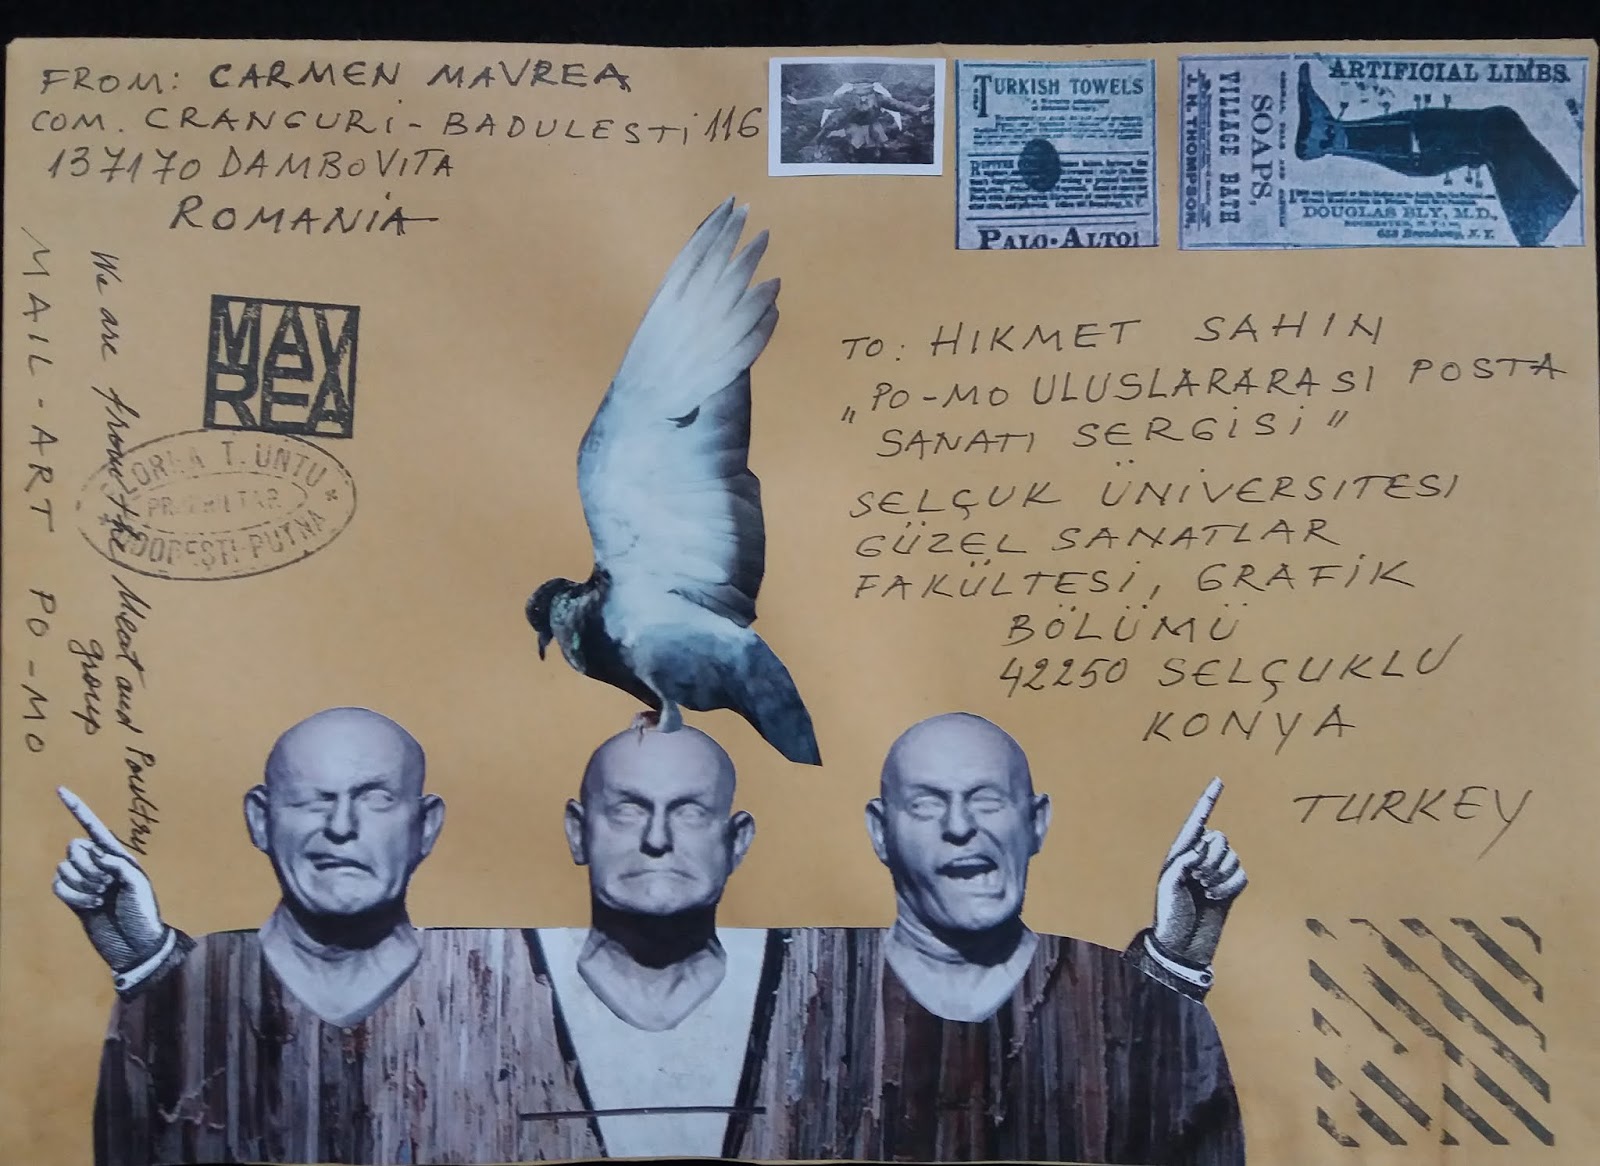 FROM: CARMEN MAVREA
COM. CRANGURI - BADULESTI 116
137170 DAMBOVITA
ROMANIA
MAIL-ART PO-MO
We are from the Meat and Poultry
group
MAV
REA
T. UNTU
PUTNA
TURKISH TOWELS
PALO-ALTO!
VILLAGE BATH
SOAPS,
J. H. THOMPSON,
ARTIFICIAL LIMBS
DOUGLAS BLY, M.D.,
658 Broadway, N.Y.
TO: HIKMET SAHIN
„PO-MO ULUSLARARASI POSTA
SANATI SERGİSİ"
SELÇUK ÜNİVERSITESI
GÜZEL SANATLAR
FAKÜLTESİ, GRAFİK
BÖLÜMÜ
42250 SELÇUKLU
KONYA
TURKEY